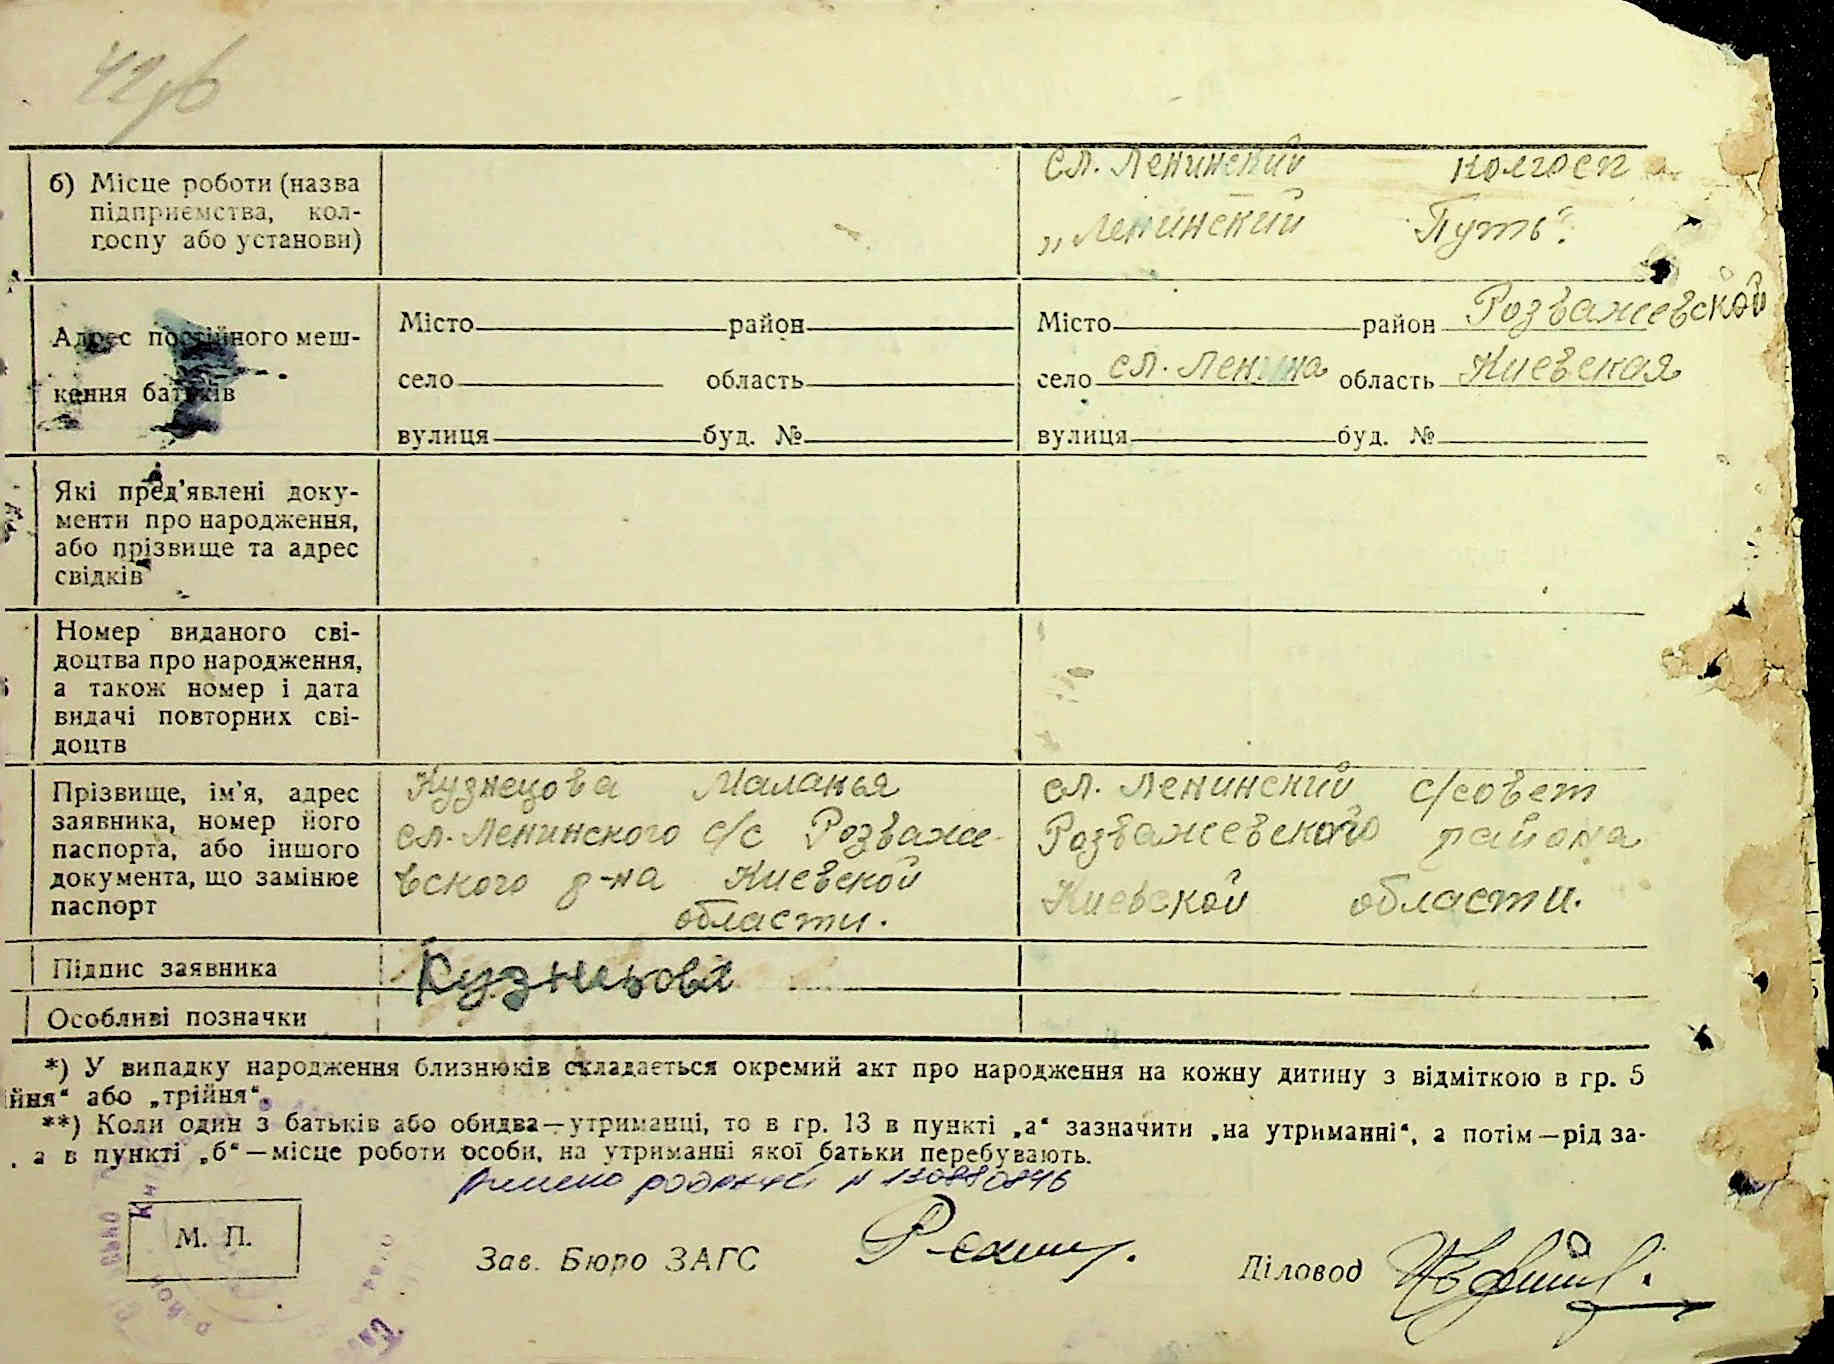 б) Місце роботи (назва
підприємства, кол-
госпу або установи)
сл. Ленинский колгосп
„Ленинский Путь".
Адрес постійного меш-
кення батьків
Місто район
село область
вулиця буд. №
Місто район Розважевской
село сл. Ленина область Киевская
вулиця буд. №
Які пред'явлені доку-
менти про народження,
або прізвище та адрес
свідків
Номер виданого сві-
доцтва про народження,
а також номер і дата
видачі повторних сві-
доцтв
Прізвище, ім'я, адрес
заявника, номер його
паспорта, або іншого
документа, що замінює
паспорт
Кузнецова Маланья
сл. Ленинского с/с Розваже-
вского р-на Киевской
области.
сл. Ленинский с/совет
Розважевского района
Киевской области.
Підпис заявника
Кузнецова
Особливі позначки
*) У випадку народження близнюків складається окремий акт про народження на кожну дитину з відміткою в гр. 5
ійня" або „трійня".
**) Коли один з батьків або обидва—утриманці, то в гр. 13 в пункті „а" зазначити „на утриманні", а потім—рід за-
, а в пункті „б"—місце роботи особи, на утриманні якої батьки перебувають.
М. П.
Зав. Бюро ЗАГС
Діловод